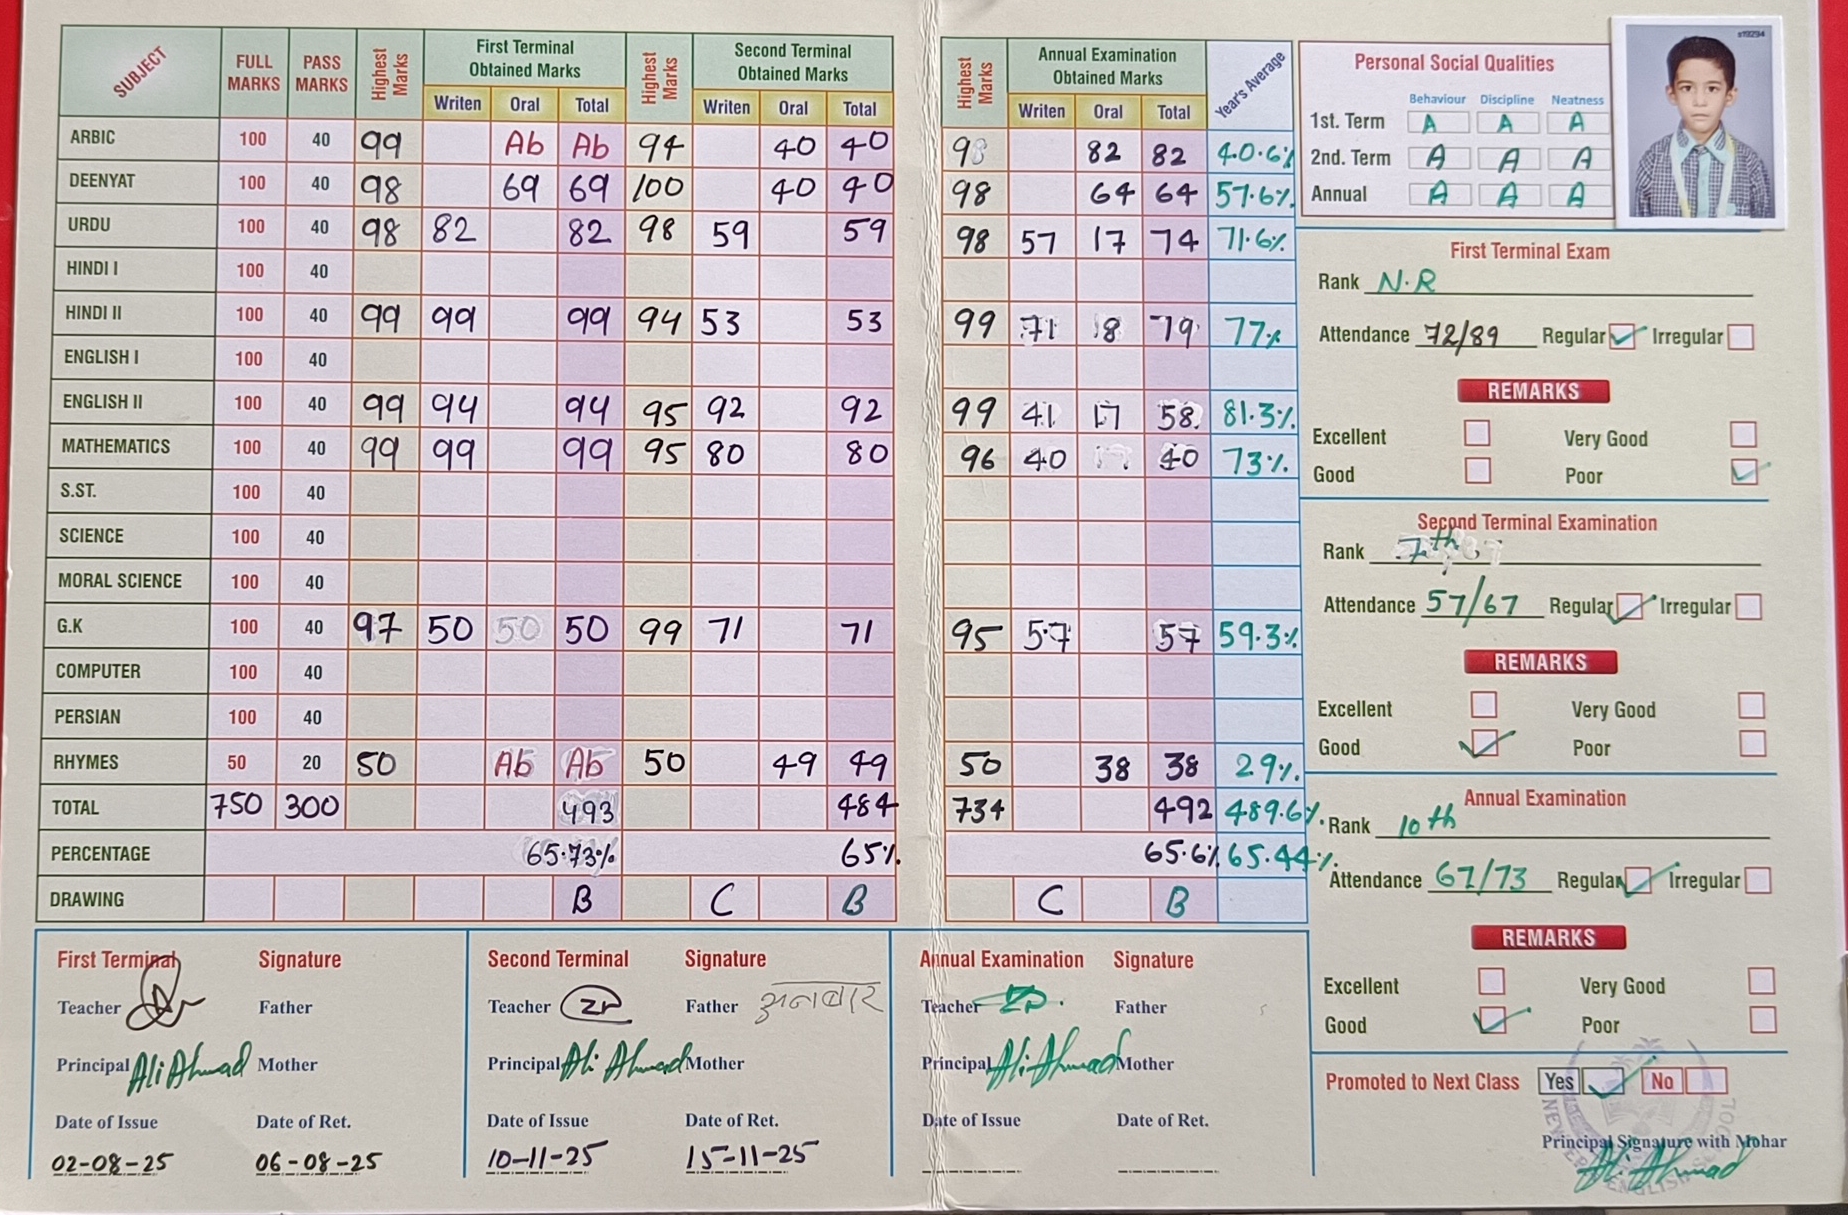 SUBJECT FULL MARKS PASS MARKS Highest Marks First Terminal Obtained Marks Writen Oral Total Highest Marks Second Terminal Obtained Marks Writen Oral Total Highest Marks Annual Examination Obtained Marks Writen Oral Total Year's Average
ARBIC 100 40 99 Ab Ab 94 40 40 98 82 82 40.6%
DEENYAT 100 40 98 69 69 100 40 40 98 64 64 57.6%
URDU 100 40 98 82 82 98 59 59 98 57 17 74 71.6%
HINDI I 100 40
HINDI II 100 40 99 99 99 94 53 53 99 71 8 79 77%
ENGLISH I 100 40
ENGLISH II 100 40 99 94 94 95 92 92 99 41 17 58 81.3%
MATHEMATICS 100 40 99 99 99 95 80 80 96 40 40 73%
S.ST. 100 40
SCIENCE 100 40
MORAL SCIENCE 100 40
G.K 100 40 97 50 50 50 99 71 71 95 57 57 59.3%
COMPUTER 100 40
PERSIAN 100 40
RHYMES 50 20 50 Ab Ab 50 49 49 50 38 38 29%
TOTAL 750 300 493 484 734 492 489.6%
PERCENTAGE 65.73% 65% 65.6% 65.44%
DRAWING B C B C B
First Terminal Signature
Teacher Father
Principal Ali Ahmad Mother
Date of Issue Date of Ret.
02-08-25 06-08-25
Second Terminal Signature
Teacher Father अनवार
Principal Ali Ahmad Mother
Date of Issue Date of Ret.
10-11-25 15-11-25
Annual Examination Signature
Teacher Father
Principal Ali Ahmad Mother
Date of Issue Date of Ret.
Personal Social Qualities
Behaviour Discipline Neatness
1st. Term A A A
2nd. Term A A A
Annual A A A
First Terminal Exam
Rank N.R
Attendance 72/89 Regular Irregular
REMARKS
Excellent Very Good
Good Poor
Second Terminal Examination
Rank 7th
Attendance 57/67 Regular Irregular
REMARKS
Excellent Very Good
Good Poor
Annual Examination
Rank 10th
Attendance 67/73 Regular Irregular
REMARKS
Excellent Very Good
Good Poor
Promoted to Next Class Yes No
Principal Signature with Mohar
Ali Ahmad